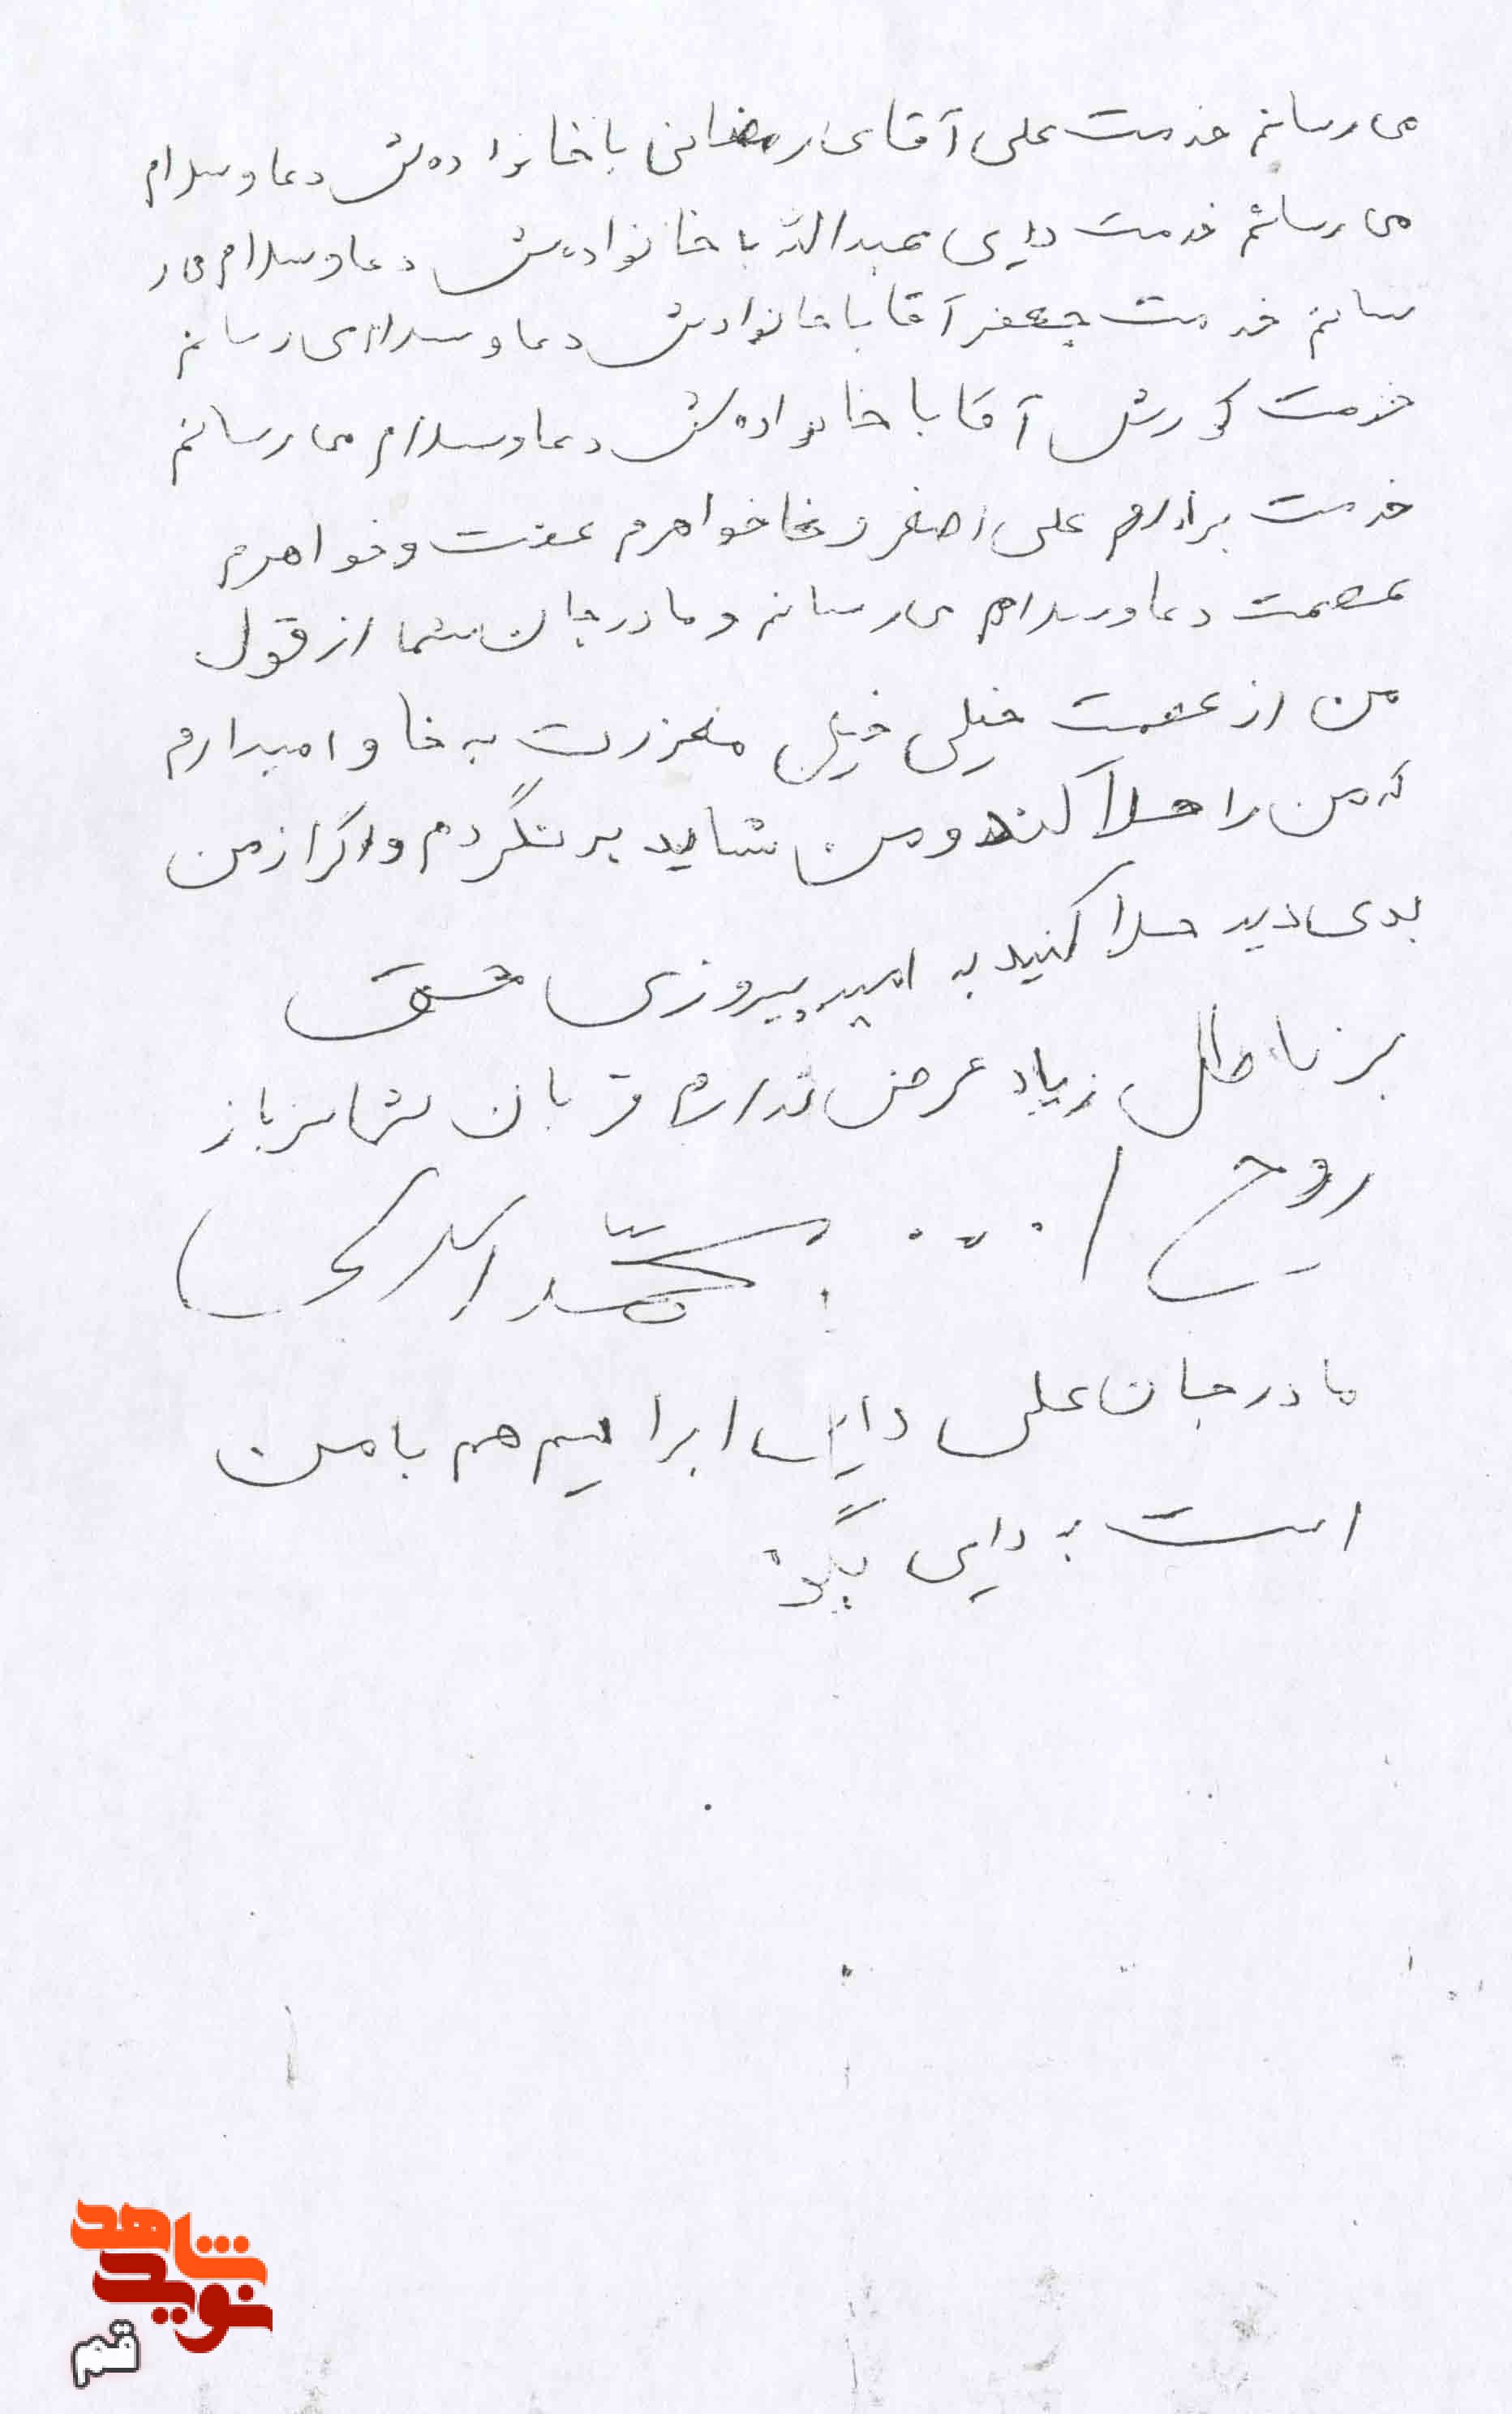 می رسانم خدمت علی آقای رمضانی با خانواده‌ش دعا و سلام
می رسانم خدمت دایی عبدالله با خانواده‌ش دعا و سلام می ر
سانم خدمت جعفر آقا با خانوادش دعا و سلام می رسانم
خدمت کورش آقا با خانواده‌ش دعا و سلام می رسانم
خدمت برادرم علی اصغر و خواهرم عفت و خواهرم
عصمت دعا و سلام می رسانم و مادر جان شما از قول
من از عصمت خیلی خیلی و امیدارم
که من را حلا کند و من شاید برنگردم و اگر از من
بدی دید حلا کنید به امید پیروزی حق
بر باطل زیاد عرض ندارم قربان شما سرباز
روح ا... محمد
مادر جان علی دایی ابراهیم هم با من
است به دایی بگو
شاهد
نوید
قم